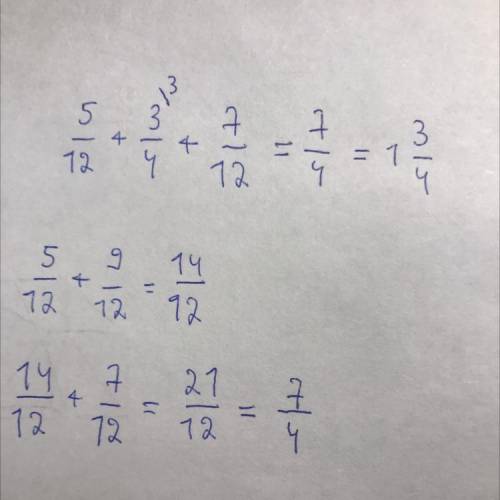 5/12 + 3/4 \3 + 7/12 = 7/4 = 1 3/4
5/12 + 9/12 = 14/12
14/12 + 7/12 = 21/12 = 7/4